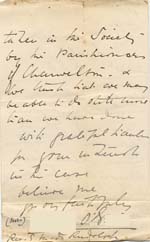 taken in the Society
by the Parishioners
of Charwelton. &
we trust that we may
be able to do little more
than we have done
with grateful thanks
for your interest
in the case
believe me
yrs very faithfully